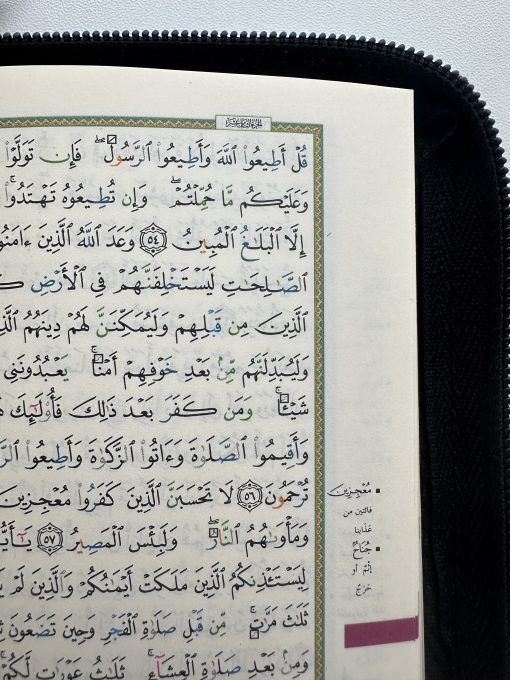 الجزء الثامن عشر
قُلْ أَطِيعُوا۟ ٱللَّهَ وَأَطِيعُوا۟ ٱلرَّسُولَ ۖ فَإِن تَوَلَّوْا۟
وَعَلَيْكُم مَّا حُمِّلْتُمْ ۖ وَإِن تُطِيعُوهُ تَهْتَدُوا۟ ۚ
إِلَّا ٱلْبَلَٰغُ ٱلْمُبِينُ ٥٤ وَعَدَ ٱللَّهُ ٱلَّذِينَ ءَامَنُوا۟
ٱلصَّٰلِحَٰتِ لَيَسْتَخْلِفَنَّهُمْ فِى ٱلْأَرْضِ
ٱلَّذِينَ مِن قَبْلِهِمْ وَلَيُمَكِّنَنَّ لَهُمْ دِينَهُمُ
وَلَيُبَدِّلَنَّهُم مِّنۢ بَعْدِ خَوْفِهِمْ أَمْنًا ۚ يَعْبُدُونَنِى
شَيْـًٔا ۚ وَمَن كَفَرَ بَعْدَ ذَٰلِكَ فَأُو۟لَٰٓئِكَ
وَأَقِيمُوا۟ ٱلصَّلَوٰةَ وَءَاتُوا۟ ٱلزَّكَوٰةَ وَأَطِيعُوا۟
تُرْحَمُونَ ٥٦ لَا تَحْسَبَنَّ ٱلَّذِينَ كَفَرُوا۟ مُعْجِزِينَ
وَمَأْوَىٰهُمُ ٱلنَّارُ ۖ وَلَبِئْسَ ٱلْمَصِيرُ ٥٧
لِيَسْتَـْٔذِنكُمُ ٱلَّذِينَ مَلَكَتْ أَيْمَٰنُكُمْ وَٱلَّذِينَ لَمْ
ثَلَٰثَ مَرَّٰتٍ ۚ مِّن قَبْلِ صَلَوٰةِ ٱلْفَجْرِ وَحِينَ تَضَعُونَ
وَمِنۢ بَعْدِ صَلَوٰةِ ٱلْعِشَآءِ ۚ ثَلَٰثُ عَوْرَٰتٍ لَّكُمْ ۚ
▪ مُعْجِزِينَ
فائتين من
عذابنا
▪ جُنَاحٌ
إثم أو
حرج